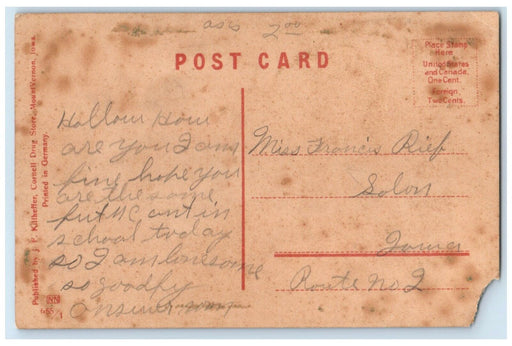 as is 2.00
POST CARD
Place Stamp
Here
United States
and Canada,
One Cent.
Foreign,
Two Cents.
Published by J. P. Kilthefler, Cornell Drug Store, Mount Vernon, Iowa.
Printed in Germany.
Hallow How
are you I am
fine hope you
are the same
put
school today
so I am lonesome
so goodby
answer
Miss Francis Rief
Solon
Iowa
Route No 2